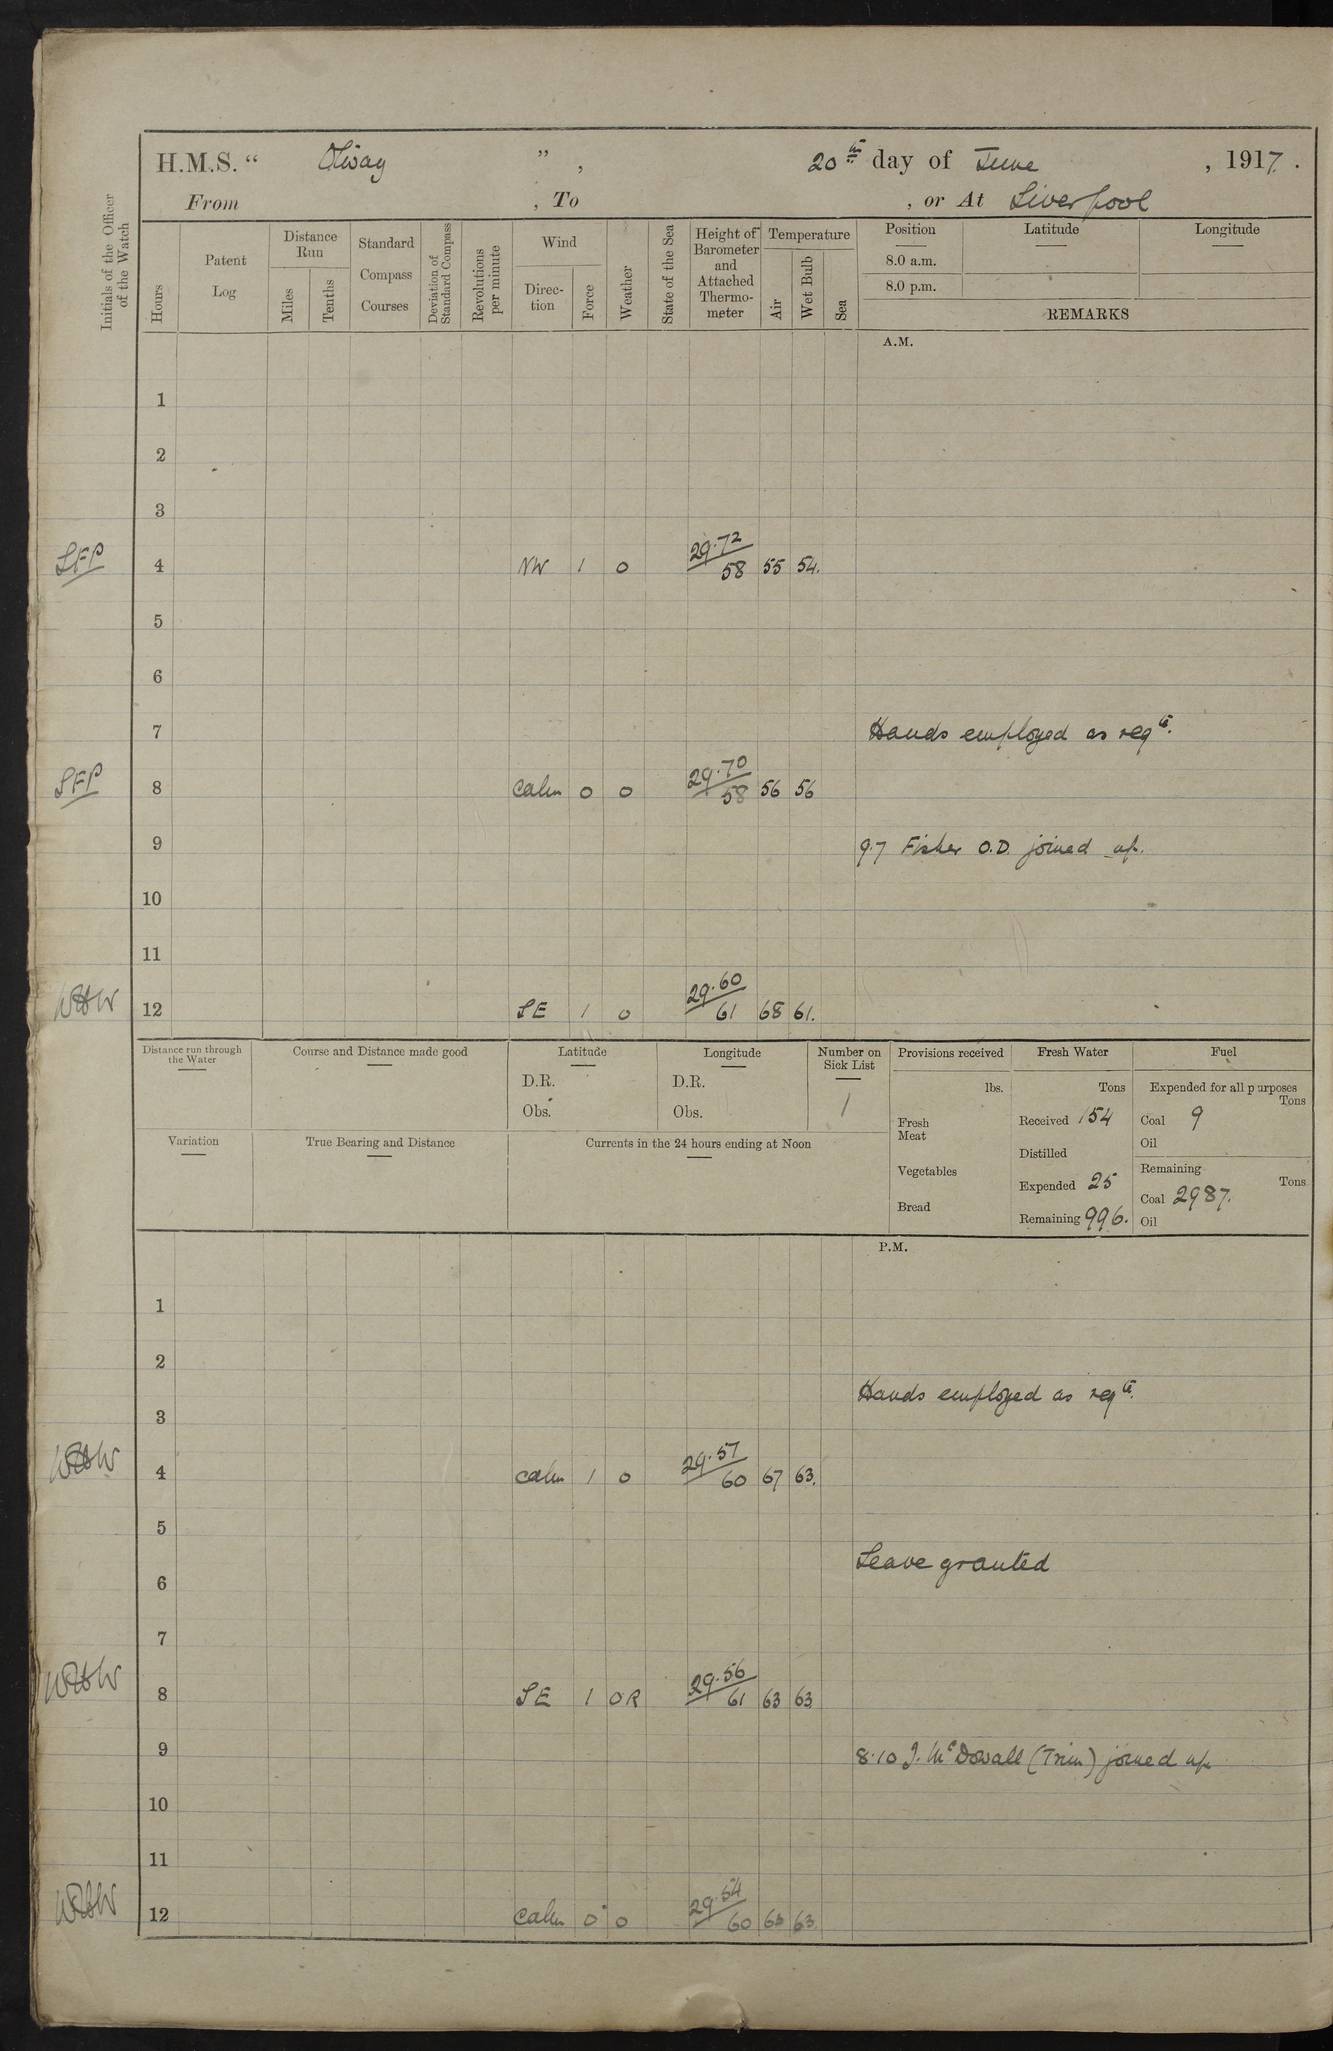 H.M.S. “ Otway ” , 20th day of June , 1917.
From , To , or At Liverpool
Initials of the Officer of the Watch
Hours
Patent Log
Distance Run
Miles
Tenths
Standard Compass Courses
Deviation of Standard Compass
Revolutions per minute
Wind
Direc-tion
Force
Weather
State of the Sea
Height of Barometer and Attached Thermo-meter
Temperature
Air
Wet Bulb
Sea
Position Latitude Longitude
8.0 a.m.
8.0 p.m.
REMARKS
A.M.
1
2
3
SFP 4 NW 1 o 29.72 58 55 54.
5
6
7 Hands employed as reqte.
SFP 8 Calm 0 o 29.70 58 56 56
9 9.7 Fisher O.D. joined up.
10
11
12 SE 1 o 29.60 61 68 61.
Distance run through the Water
Course and Distance made good
Latitude
D.R.
Obs.
Longitude
D.R.
Obs.
Number on Sick List
1
Provisions received
lbs.
Fresh Meat
Vegetables
Bread
Fresh Water
Tons
Received 154
Distilled
Expended 25
Remaining 996.
Fuel
Expended for all purposes
Tons
Coal 9
Oil
Remaining
Tons
Coal 2987.
Oil
Variation
True Bearing and Distance
Currents in the 24 hours ending at Noon
P.M.
1
2
Hands employed as reqte.
3
4 Calm 1 o 29.57 60 67 63.
5
Leave granted
6
7
8 SE 1 OR 29.56 61 63 63
9 8.10 J. McDowall (Trim) joined up
10
11
12 Calm 0 o 29.54 60 63.